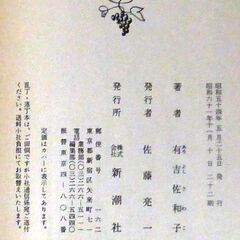 昭和五十四年 五月二十五日 発行
昭和六十一年十一月 十 日 二十二刷
著者 有吉佐和子
あり よし さ わ こ
発行者 佐藤亮一
発行所 株式会社 新潮社
郵便番号 一六二
東京都新宿区矢来町七一
電話 業務部(〇三)二六六―五一一一
編集部(〇三)二六六―五四四〇
振替 東京四―八〇八番
定価はカバーに表示してあります。
乱丁・落丁本は、ご面倒ですが小社通信係宛ご送付
ください。送料小社負担にてお取替えいたします。